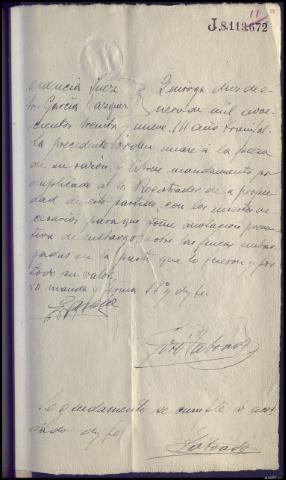 11
J.8.113.672
Providencia Juez
Sr. García Vázquez
Quiroga diez de e-
nero de mil nove-
cientos treinta y nueve. III año triunfal.
La precedente únase a la pieza
de su razón, y líbrese mandamiento por
duplicado al Sr. Registrador de la propie-
dad de este partido, con los insertos ne-
cesarios, para que tome anotación preven-
tiva de embargo, sobre las fincas embar-
gadas en la parte que lo fueron y por
todo su valor.
Lo manda y firma SSª, doy fe.
José Taboada
Seguidamente se cumple lo acor-
dado doy fe
Taboada